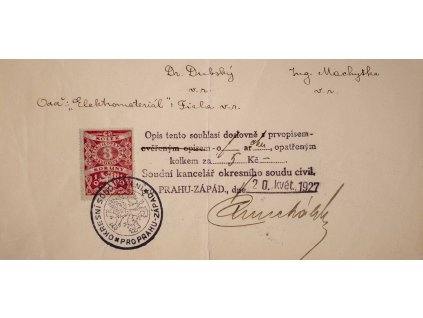 Dr. Dubský
v. r.
Ing. Machytka
v. r.
Oda: "Elektromateriál": Fiala v. r.
3
Opis tento souhlasí doslovně s prvopisem-
ověřeným opisem o ar opatřeným
kolkem za 5 Kč —
Soudní kancelář okresního soudu civil.
PRAHU-ZÁPAD, dne 20. květ. 1927
PRO PRAHU-ZÁPAD